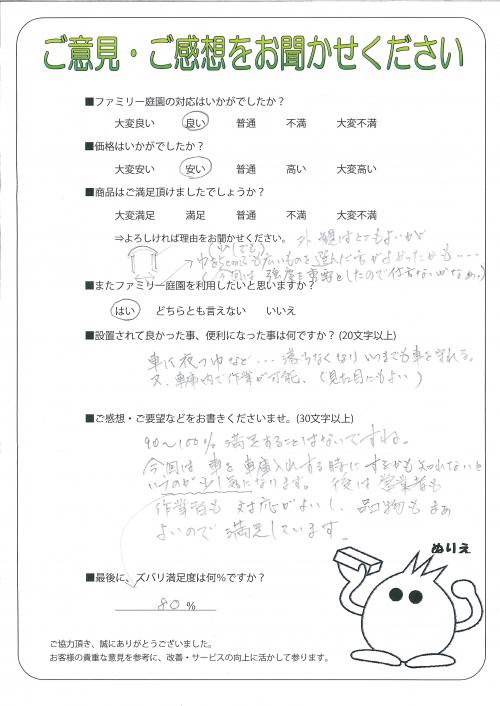 ご意見・ご感想をお聞かせください
■ファミリー庭園の対応はいかがでしたか？
大変良い 良い 普通 不満 大変不満
■価格はいかがでしたか？
大変安い 安い 普通 高い 大変高い
■商品はご満足頂けましたでしょうか？
大変満足 満足 普通 不満 大変不満
⇒よろしければ理由をお聞かせください。 外観はとてもよいが
(少しでも)
巾を5cmでも広いものを選んだ方がよかったかも・・・
(今回は強度を重要としたので仕方ないかなぁ。)
■またファミリー庭園を利用したいと思いますか？
はい どちらとも言えない いいえ
■設置されて良かった事、便利になった事は何ですか？(20文字以上)
車に夜つゆなど・・・落ちなくなりいつまでも車を守れる。
又、車庫内で作業が可能、(見た目にもよい)
■ご感想・ご要望などをお書きくださいませ。(30文字以上)
90～100% 満足することはないですね。
今回は車を車庫入れする時にするかも知れないと
いうのが少し気になります。後は営業者も
作業者も対応がよいし、品物もまぁ
よいので満足しています。
ぬりえ
■最後に、ズバリ満足度は何％ですか？
80 %
ご協力頂き、誠にありがとうございました。
お客様の貴重な意見を参考に、改善・サービスの向上に活かして参ります。